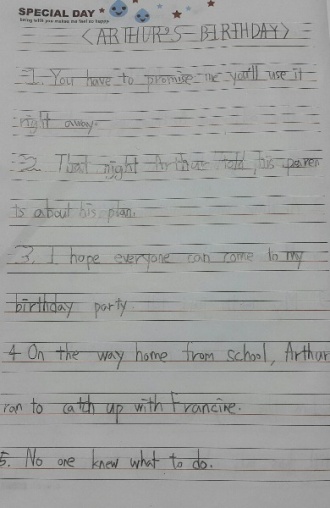 SPECIAL DAY
being with you makes me feel so happy
<ARTHUR'S BIRTHDAY>
1. You have to promise me you'll use it
right away.
2. That night Arthur told his paren
ts about his plan.
3. I hope everyone can come to my
birthday party
4 On the way home from school, Arthur
ran to catch up with Francine.
5. No one knew what to do.